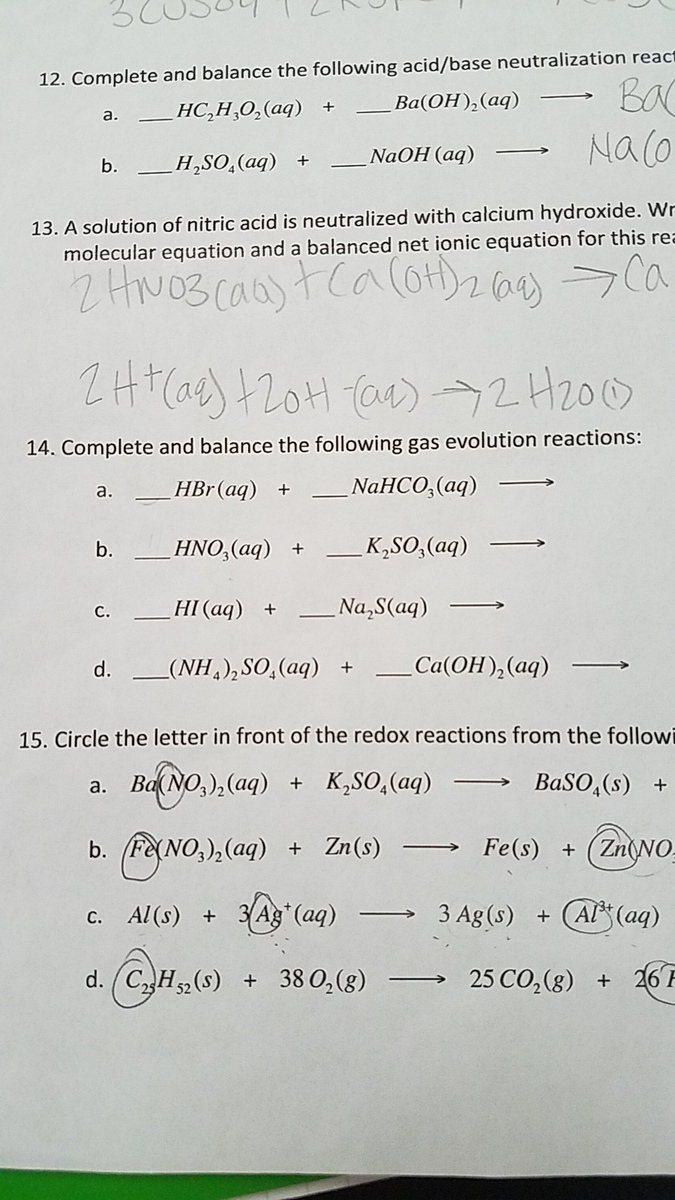 3CuSO4 + 2K3P
12. Complete and balance the following acid/base neutralization react
a. ___ HC₂H₃O₂(aq) + ___ Ba(OH)₂(aq) ⟶ Ba(
b. ___ H₂SO₄(aq) + ___ NaOH (aq) ⟶ Na(O
13. A solution of nitric acid is neutralized with calcium hydroxide. Wr
molecular equation and a balanced net ionic equation for this rea
2HNO3(aq) + Ca(OH)2(aq) → Ca
2H+(aq) + 2OH-(aq) → 2H2O(l)
14. Complete and balance the following gas evolution reactions:
a. ___ HBr(aq) + ___ NaHCO₃(aq) ⟶
b. ___ HNO₃(aq) + ___ K₂SO₃(aq) ⟶
c. ___ HI(aq) + ___ Na₂S(aq) ⟶
d. ___ (NH₄)₂SO₄(aq) + ___ Ca(OH)₂(aq) ⟶
15. Circle the letter in front of the redox reactions from the followi
a. Ba(NO₃)₂(aq) + K₂SO₄(aq) ⟶ BaSO₄(s) +
b. Fe(NO₃)₂(aq) + Zn(s) ⟶ Fe(s) + Zn(NO₃
c. Al(s) + 3 Ag⁺(aq) ⟶ 3 Ag(s) + Al³⁺(aq)
d. C₂₅H₅₂(s) + 38 O₂(g) ⟶ 25 CO₂(g) + 26 H